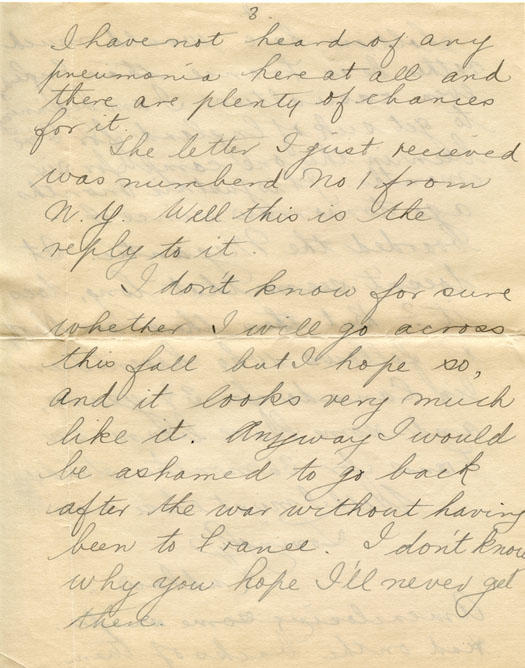 3.
I have not heard of any
pneumonia here at all and
there are plenty of chances
for it.
The letter I just recieved
was numberd No 1 from
N. Y. Well this is the
reply to it.
I don't know for sure
whether I will go across
this fall but I hope so,
and it looks very much
like it. Anyway I would
be ashamed to go back
after the war without having
been to France. I don't know
why you hope I'll never get
there.